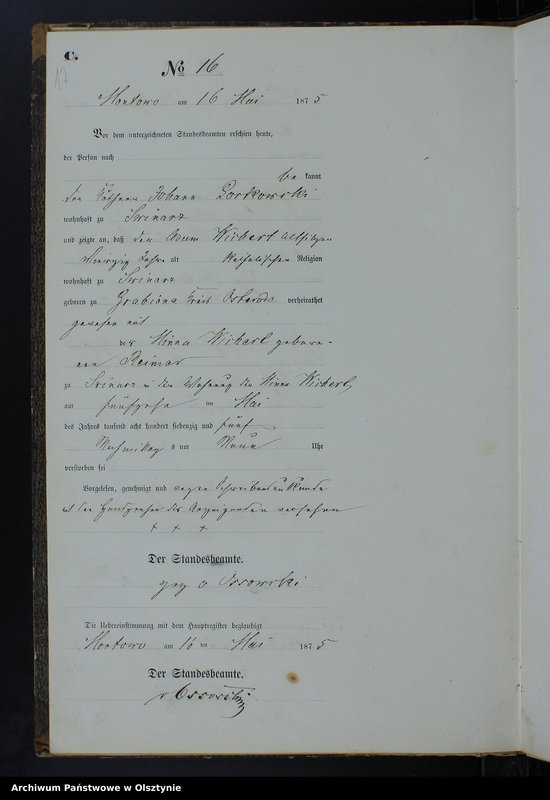 C.
17
No 16
Montowo am 16 Mai 1875
Vor dem unterzeichneten Standesbeamten erschien heute,
der Person nach
be kannt
der Käthner Johann Porkowski
wohnhaft zu Swinarz
und zeigte an, daß der Adam Wichert Altsitzer
vierzig Jahre alt katholischer Religion
wohnhaft zu Swinarz
geboren zu Grabiona Kreis Osterode verheirathet
gewesen mit
der Minna Wichert gebore-
nen Reimar
zu Swinarz in der Wohnung der Minna Wichert
am fünfzehn ten Mai
des Jahres tausend acht hundert siebenzig und fünf
Nachmittag s um Neun Uhr
verstorben sei
Vorgelesen, genehmigt und wegen Schreibensunkunde
mit den Handzeichen des Anzeigenden versehen
+ + +
Der Standesbeamte.
gez v Ossowski
Die Uebereinstimmung mit dem Hauptregister beglaubigt
Montowo am 16 ten Mai 1875
Der Standesbeamte.
v Ossowski
Archiwum Państwowe w Olsztynie